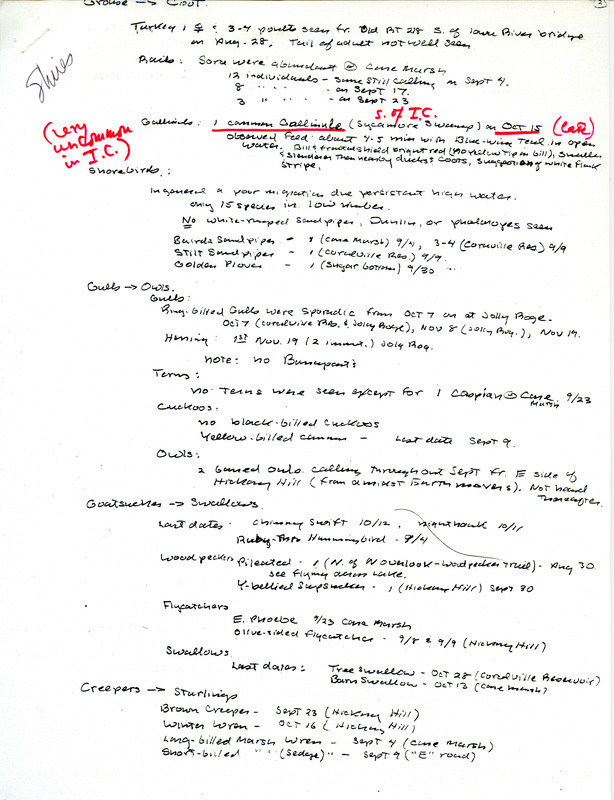 Grouse → Coot
(2)
Shires
Turkey 1 ♀ & 3-4 poults seen fr. Old RT 28 S. of Iowa River bridge
on Aug. 28, Tail of adult not well seen
Rails: Sora were abundant @ Cone Marsh
12 individuals - some still calling on Sept 4.
8 " " - on Sept 17.
3 " " - on Sept 23
S. of I.C.
Gallinule: 1 common Gallinule (Sycamore Swamp) on Oct 15 (late)
(very uncommon in I.C.)
observed feed. about 4-5 min with Blue-wing Teal in open
water. Bill & frontal shield bright red (no yellow tip on bill), smaller
& slenderer than nearby ducks & coots, suggestion of white flank
stripe.
Shorebirds:
In general a poor migration due persistent high water.
only 15 species in low number.
No white-rumped Sandpipers, Dunlin, or phalaropes seen
Bairds Sandpiper - (Cone Marsh) 9/4, 3-4 (Coralville Res) 9/9
Stilt Sandpiper - 1 (Coralville Res.) 9/9.
Golden Plover - 1 (Sugar bottom) 9/30
Gulls → Owls.
Gulls:
Ring-billed Gulls were sporadic from Oct 7 on at Jolly Roge.
Oct 7 (Coralville Res. & Jolly Roge), Nov 8 (Jolly Rog.), Nov 19.
Herring: 1st Nov. 19 (2 immat.) Joly Rog.
note: no Bonaparte's
Terns:
no Terns were seen except for 1 Caspian @ Cone Marsh 9/23
Cuckoos:
no black-billed cuckoos
Yellow-billed common - Last date Sept 9.
Owls:
2 barred owls calling throughout Sept fr. E side of
Hickory Hill (from amidst Earthmovers). Not heard
thereafter.
Goatsuckers → Swallows.
Last dates: Chimney Swift 10/12, nighthawk 10/11
Ruby-Thro Hummingbird - 9/4
Woodpeckers Pileated - 1 (N. of W overlook-woodpecker trail) - Aug 30.
see flying across Lake.
Y-bellied Sapsucker - 1 (Hickory Hill) Sept 30
Flycatchers
E. Phoebe 9/23 Cone Marsh
Olive-sided Flycatcher - 9/8 & 9/9 (Hickory Hill)
Swallows
Last dates: Tree Swallow - Oct 28 (Coralville Reservoir)
Barn Swallow - Oct 13 (Cone Marsh)
Creepers → Starlings
Brown Creeper - Sept 23 (Hickory Hill)
Winter Wren - Oct 16 (Hickory Hill)
Long-billed Marsh Wren - Sept 4 (Cone Marsh)
Short-billed " " (Sedge) " - Sept 9 ("E" road)